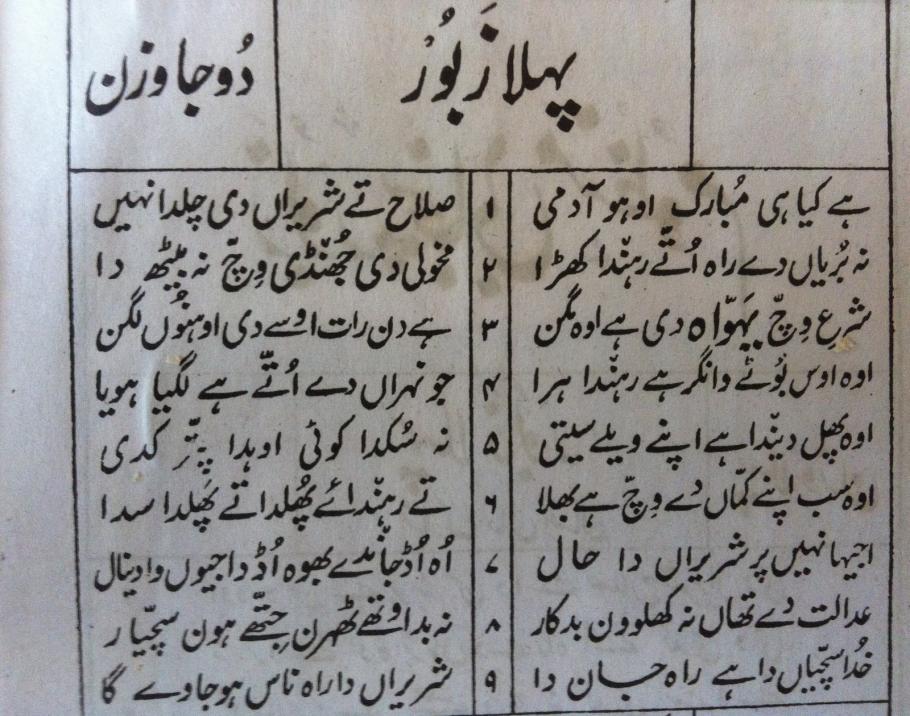 پہلا زَبُوُر دُوجا وزن
ہے کیا ہی مُبارک اوہو آدمی ۱ صلاح تے شریراں دی چلدا نہیں
نہ بُریاں دے راہ اُتّے رہندا کھڑا ۲ مخولی دی جُھنڈی وِچّ نہ بیٹھ دا
شرع وِچّ یہوّاہ دی ہے اوہ مگن ۳ ہے دن رات اوسے دی اوہنوُں لگن
اوہ اوس بُوٹے وانگر ہے رہندا ہرا ۴ جو نہراں دے اُتّے ہے لگیا ہویا
اوہ پھل دیندا ہے اپنے ویلے سیتی ۵ نہ سُکدا کوئی اوہدا پتّر کدی
اوہ سب اپنے کمّاں دے وِچّ ہے بھلا ۶ تے رہندا ئے پُھلدا تے پَھلدا سدا
اجیہا نہیں پر شریراں دا حال ۷ اُہ اُڈ جاندے بھوہ اُڈدا جیوں وا دینال
عدالت دے تھاں نہ کھلوون بدکار ۸ نہ بد اوتھے ٹھہرن جتّھے ہون سچیّار
خُدا سچیّاں دا ہے راہ جان دا ۹ شریراں دا راہ ناس ہو جاوے گا